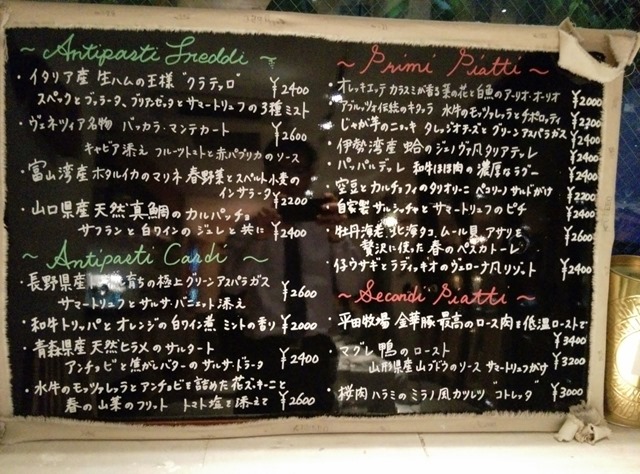 ~ Antipasti Freddi ~
・イタリア産 生ハムの王様 "クラテッロ" ¥2400
スペックとブッラータ、ブリアンゼッタとサマートリュフの3種ミスト
・ヴェネツィア名物 バッカラ・マンテカート ¥2600
キャビア添え フルーツトマトと赤パプリカのソース
・富山湾産ホタルイカのマリネ 春野菜とスペルト小麦の
インサラータ ¥2200
・山口県産 天然真鯛の カルパッチョ
サフランと白ワインの ジュレと共に ¥2400
~ Antipasti Cardi ~
・長野県産 育ちの極上グリーンアスパラガス
サマートリュフとサルサ・バニェット添え ¥2600
・和牛トリッパとオレンジの白ワイン煮 ミントの香り ¥2000
・青森県産 天然ヒラメのサルタート
アンチョビと焦がしバターのサルサ・ドラータ ¥2400
・水牛のモッツァレッラとアンチョビを詰めた花ズッキーニと
春の山菜のフリット トマト塩を添えて ¥2600
~ Primi Piatti ~
・オレッキエッテ カラスミが香る菜の花と白魚のアーリオ・オーリオ ¥2000
アブルッツォ伝統のキタッラ 水牛のモッツァレッラとチポロッティ ¥2200
・じゃが芋のニョッキ タレッジオチーズとグリーンアスパラガス ¥2400
・伊勢湾産 蛤のジェノヴァ風タリアテッレ ¥2400
・パッパルデッレ 和牛ほほ肉の濃厚なラグー ¥2400
・空豆とカルチョフィのタリオリーニ ペコリーノサルドがけ ¥2200
・自家製サルシッチャとサマートリュフのピチ ¥2400
・牡丹海老、北海タコ、ムール貝、アサリと
贅沢に使った春のペスカトーレ ¥2600
・仔ウサギとラディッキオのヴェローナ風リゾット ¥2400
~ Secondi Piatti ~
・平田牧場 金華豚最高のロース肉を低温ローストで ¥3400
・マグレ鴨のロースト
山形県産山ブドウのソース サマートリュフがけ ¥3200
・桜肉ハラミのミラノ風カツレツ "コトレッタ" ¥3000